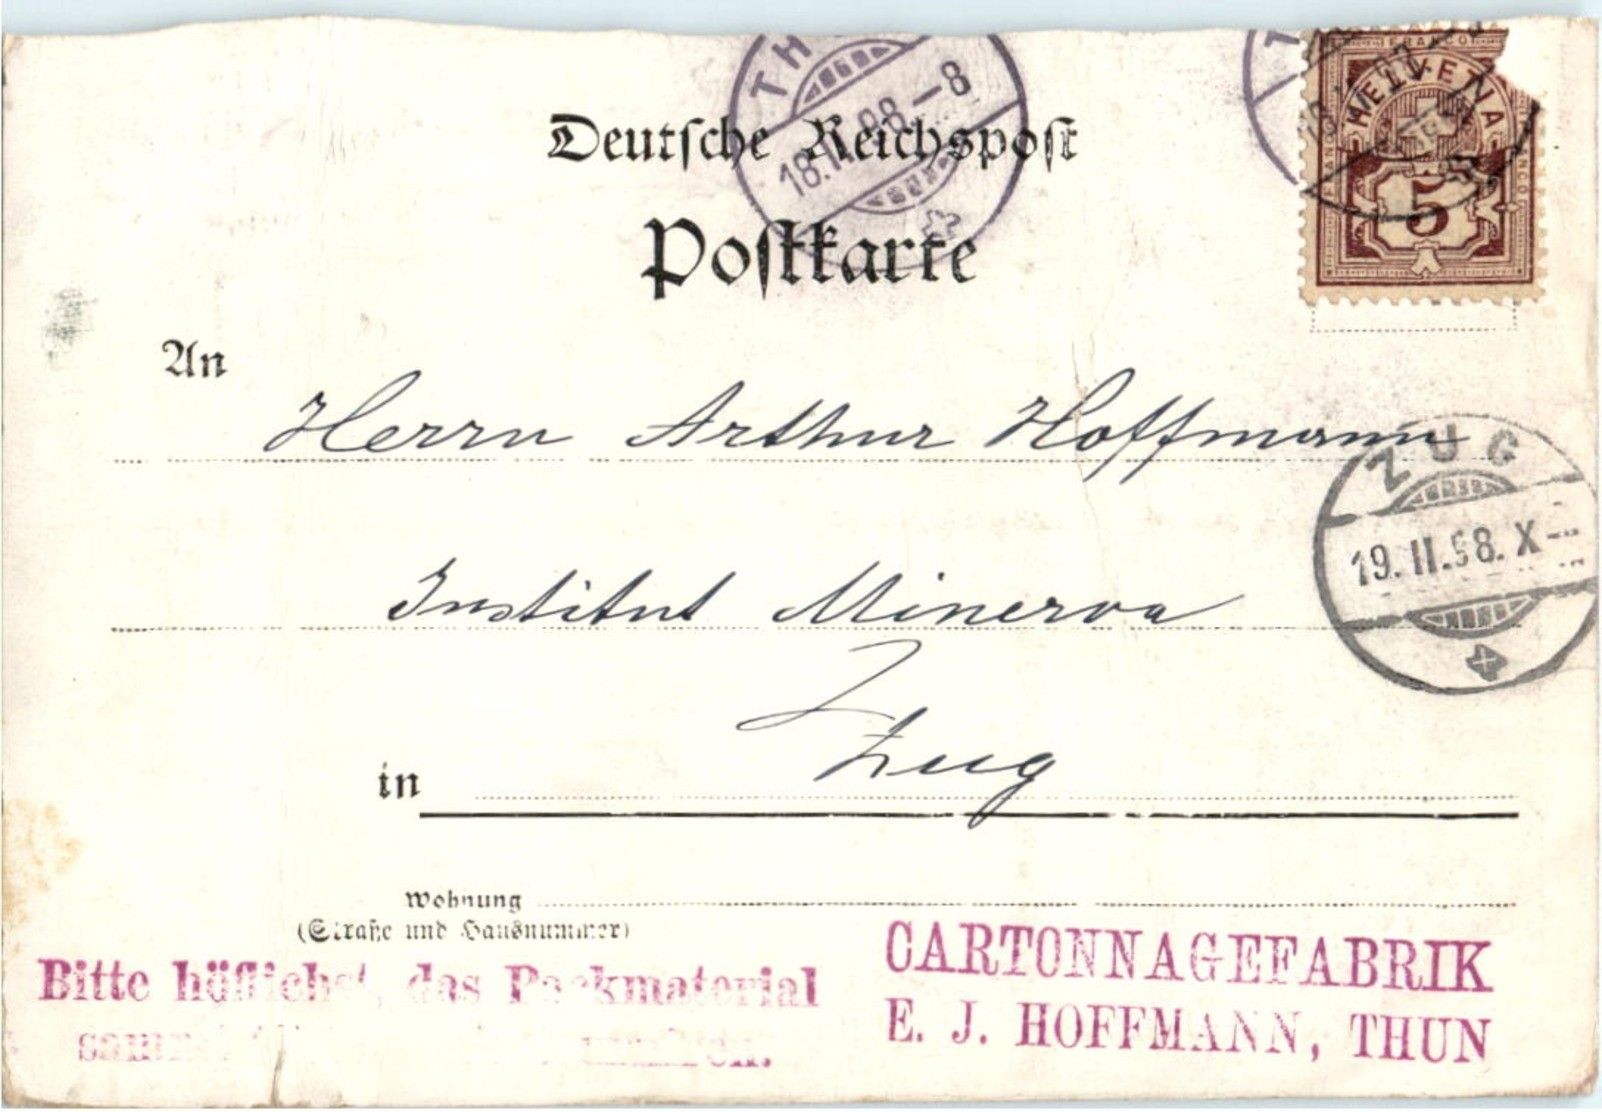 Deutsche Reichspost
Postkarte
18.II.98–8
FRANCO
HELVETIA
FRANCO
5
An Herrn Arthur Hoffmann
ZUG
19.II.98.X–
Institut Minerva
Zug
in
Wohnung
(Straße und Hausnummer)
Bitte höflichst, das Packmaterial
CARTONNAGEFABRIK
E. J. HOFFMANN, THUN